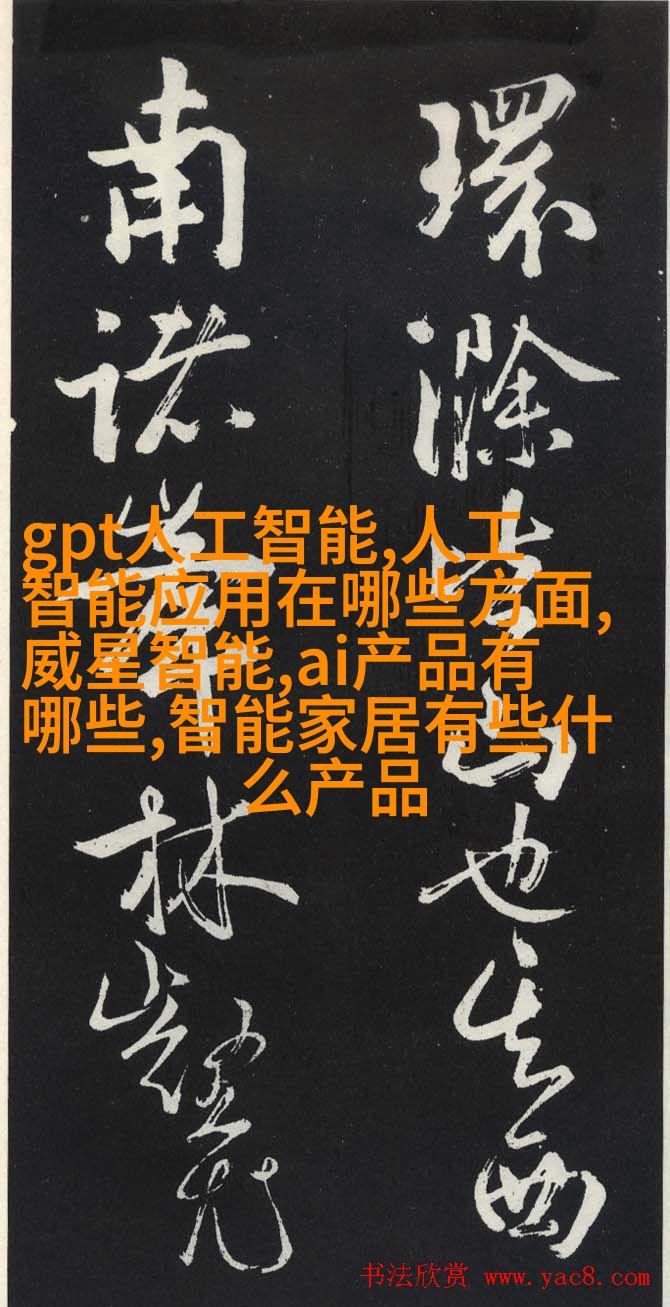 環滁皆山也其西
南諸峯林壑尤
gpt人工智能,人工
智能应用在哪些方面,
威星智能,ai产品有
哪些,智能家居有些什
么产品
书法欣赏 www.yac8.com